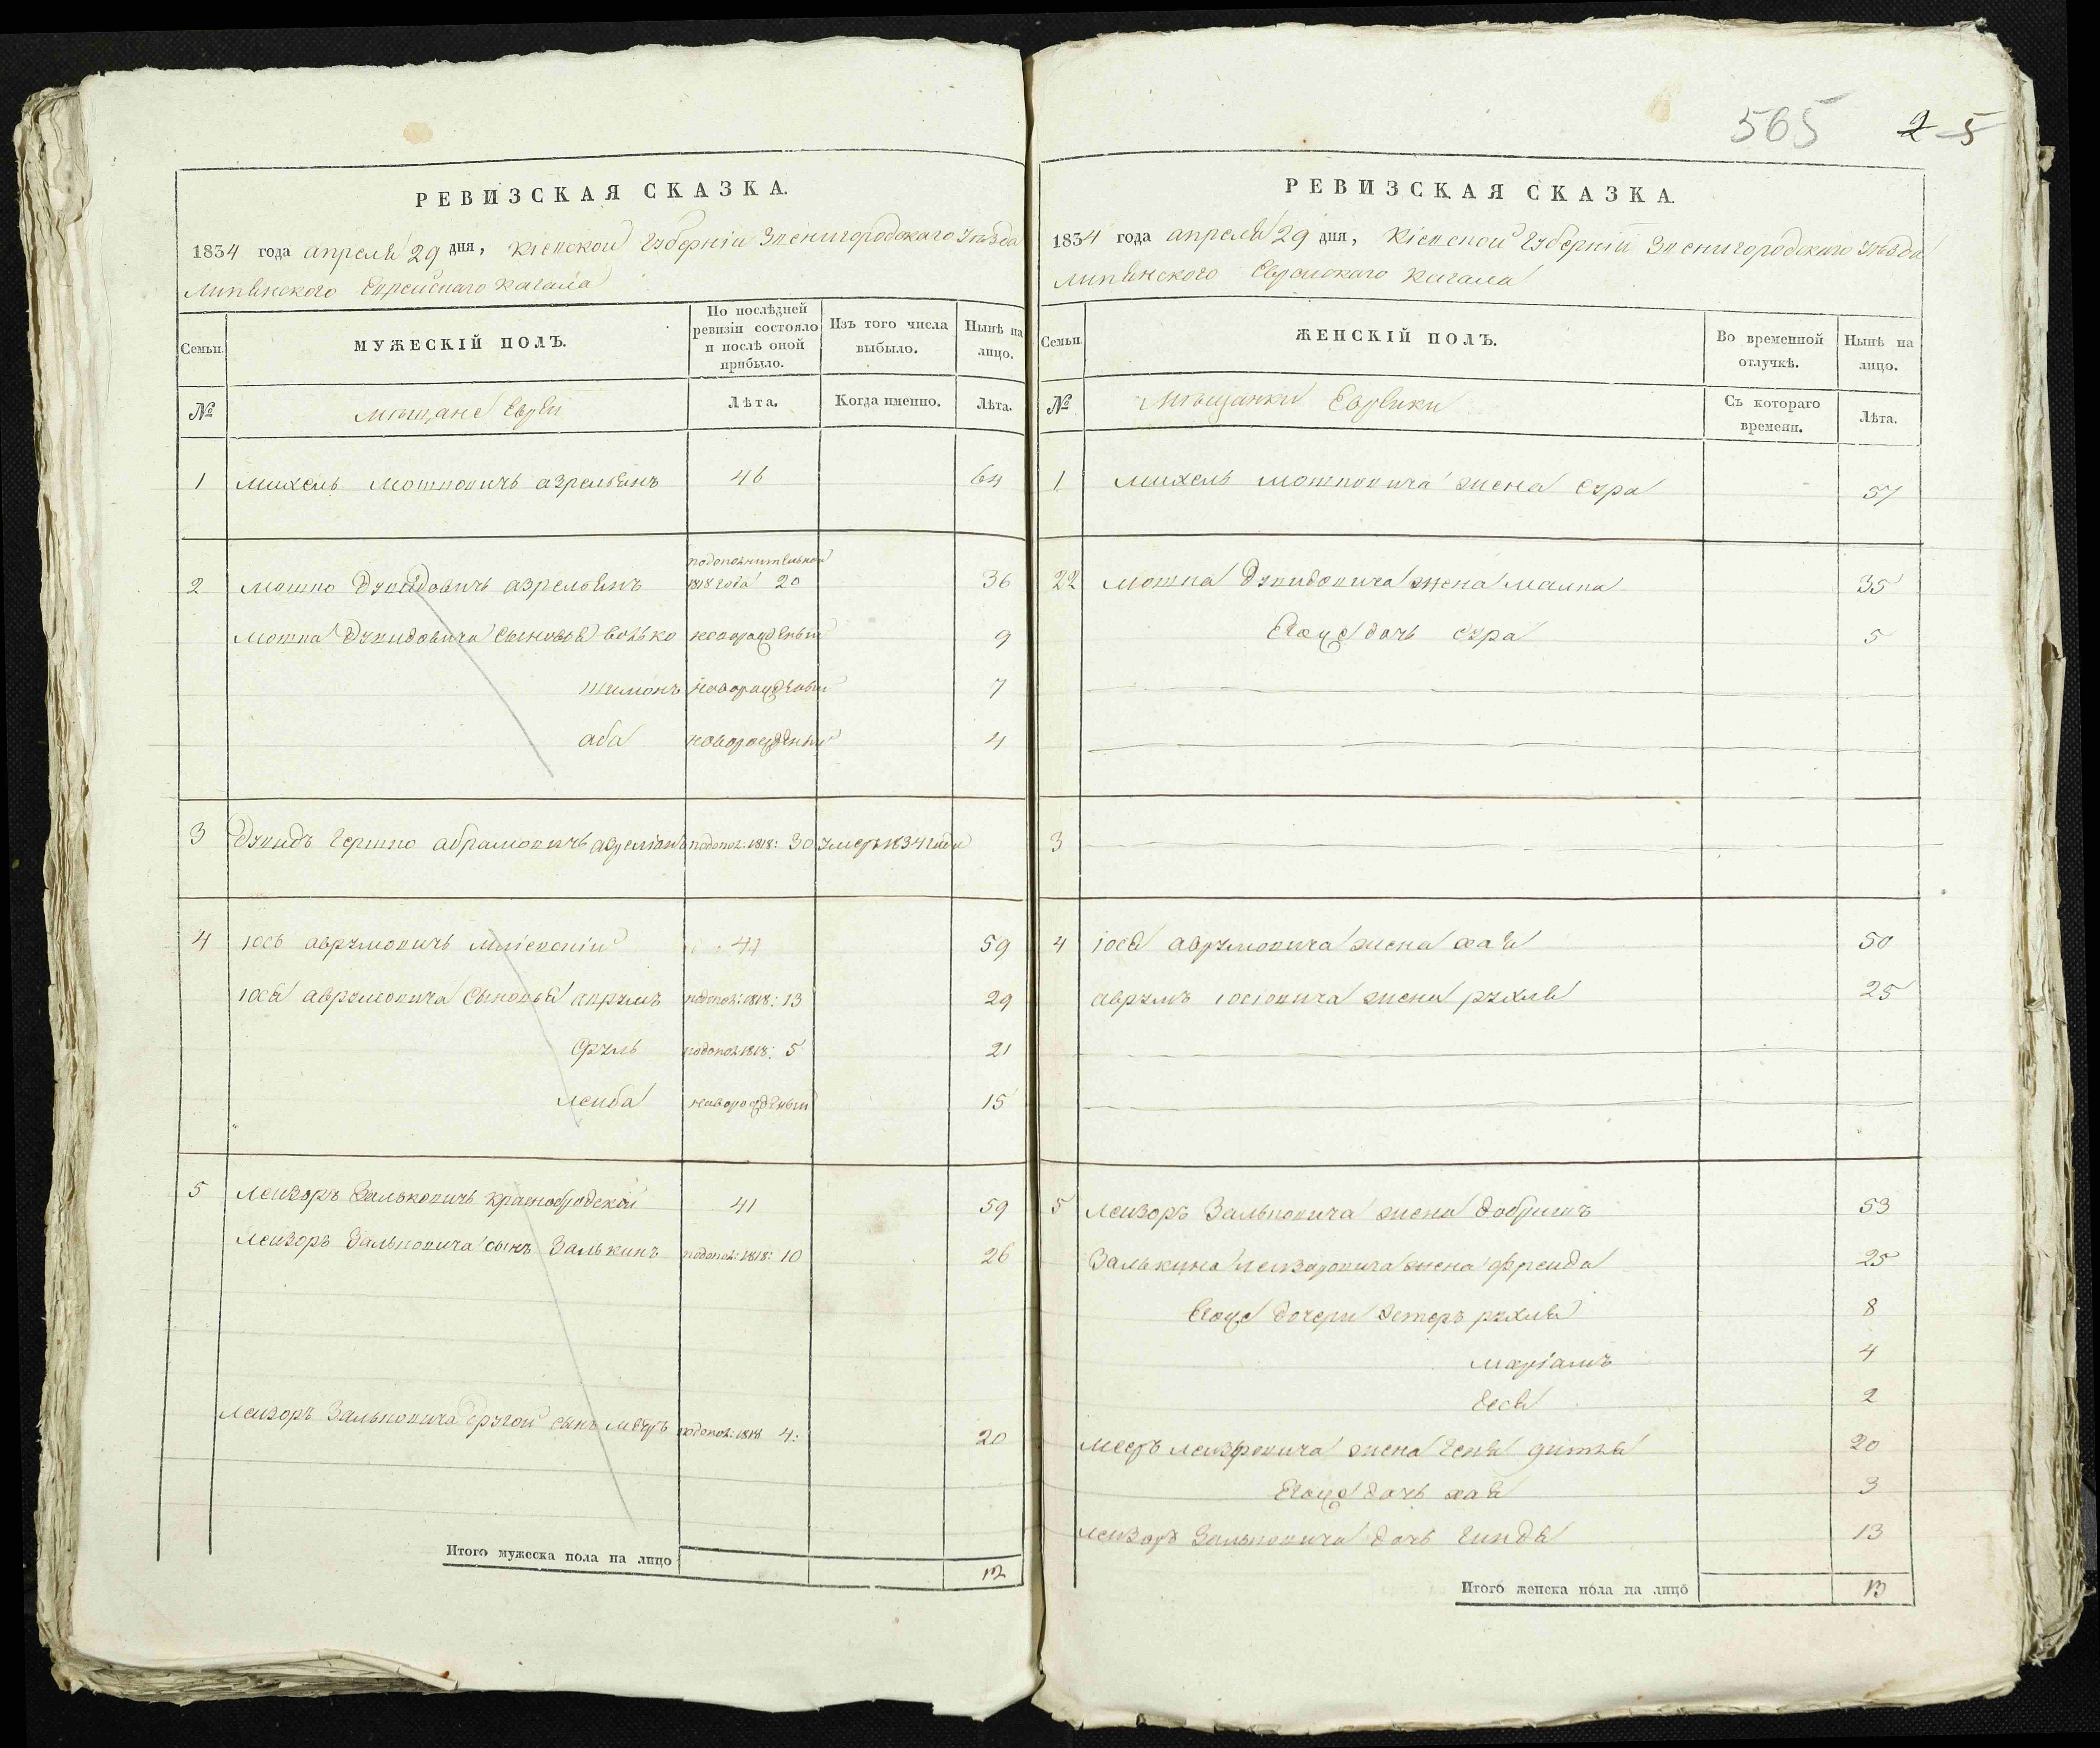 565 2 5
РЕВИЗСКАЯ СКАЗКА.
1834 года апреля 29 дня, Кіевской Губерніи Звенигородского уезда
Еврейскаго кагала
Семьи.
МУЖЕСКІЙ ПОЛЪ.
По послѣдней ревизіи состояло и послѣ оной прибыло.
Изъ того числа выбыло.
Нынѣ на лицо.
№
мещане Евреи
Лѣта.
Когда именно.
Лѣта.
1 михель мошковичъ 46 64
2 мошко дувидовичъ 1818 года 20 36
мошка дувидовича сыновья волько новорожденый 9
шимонъ новорожденый 7
аба новорожденый 4
3 дувидъ гершко абрамовичъ подопол: 1818: 30 умеръ 1834 года
4 іось аврумовичъ 41 59
іося аврумовича сыновья аврумъ подопол: 1818: 13 29
сруль подопол: 1818: 5 21
лейба новорожденый 15
5 лейзоръ Залькович краснобродской 41 59
лейзоръ Зальковича сынъ Залькинъ подопол: 1818: 10 26
лейзоръ Зальковича другой сынъ мееръ подопол: 1818 4: 20
Итого мужеска пола на лицо 12
РЕВИЗСКАЯ СКАЗКА.
1834 года апреля 29 дня, Кіевской Губерніи Звенигородского уезда
Еврейскаго кагала
Семьи.
ЖЕНСКІЙ ПОЛЪ.
Во временной отлучкѣ.
Нынѣ на лицо.
№
Мещанки Еврейки
Съ котораго времени.
Лѣта.
1 михель мошковича жена сура 57
22 мошка дувидовича жена малка 35
Егоже дочь сура 5
3
4 іося аврумовича жена хая 50
аврумъ іосіовича жена рухля 25
5 лейзоръ Зальковича жена 53
Залькина лейзоровича жена фрейда 25
Егоже дочери эстеръ рухля 8
маріамъ 4
бося 2
мееръ лейзоровича жена геня 20
Егоже дочь хая 3
лейзоръ Зальковича дочь гинда 13
Итого женска пола на лицо 13